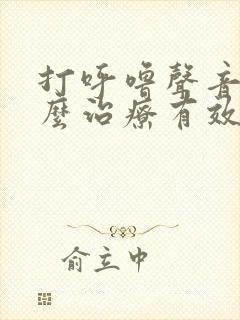 打呼嚕聲音
麼治療有效
俞立中